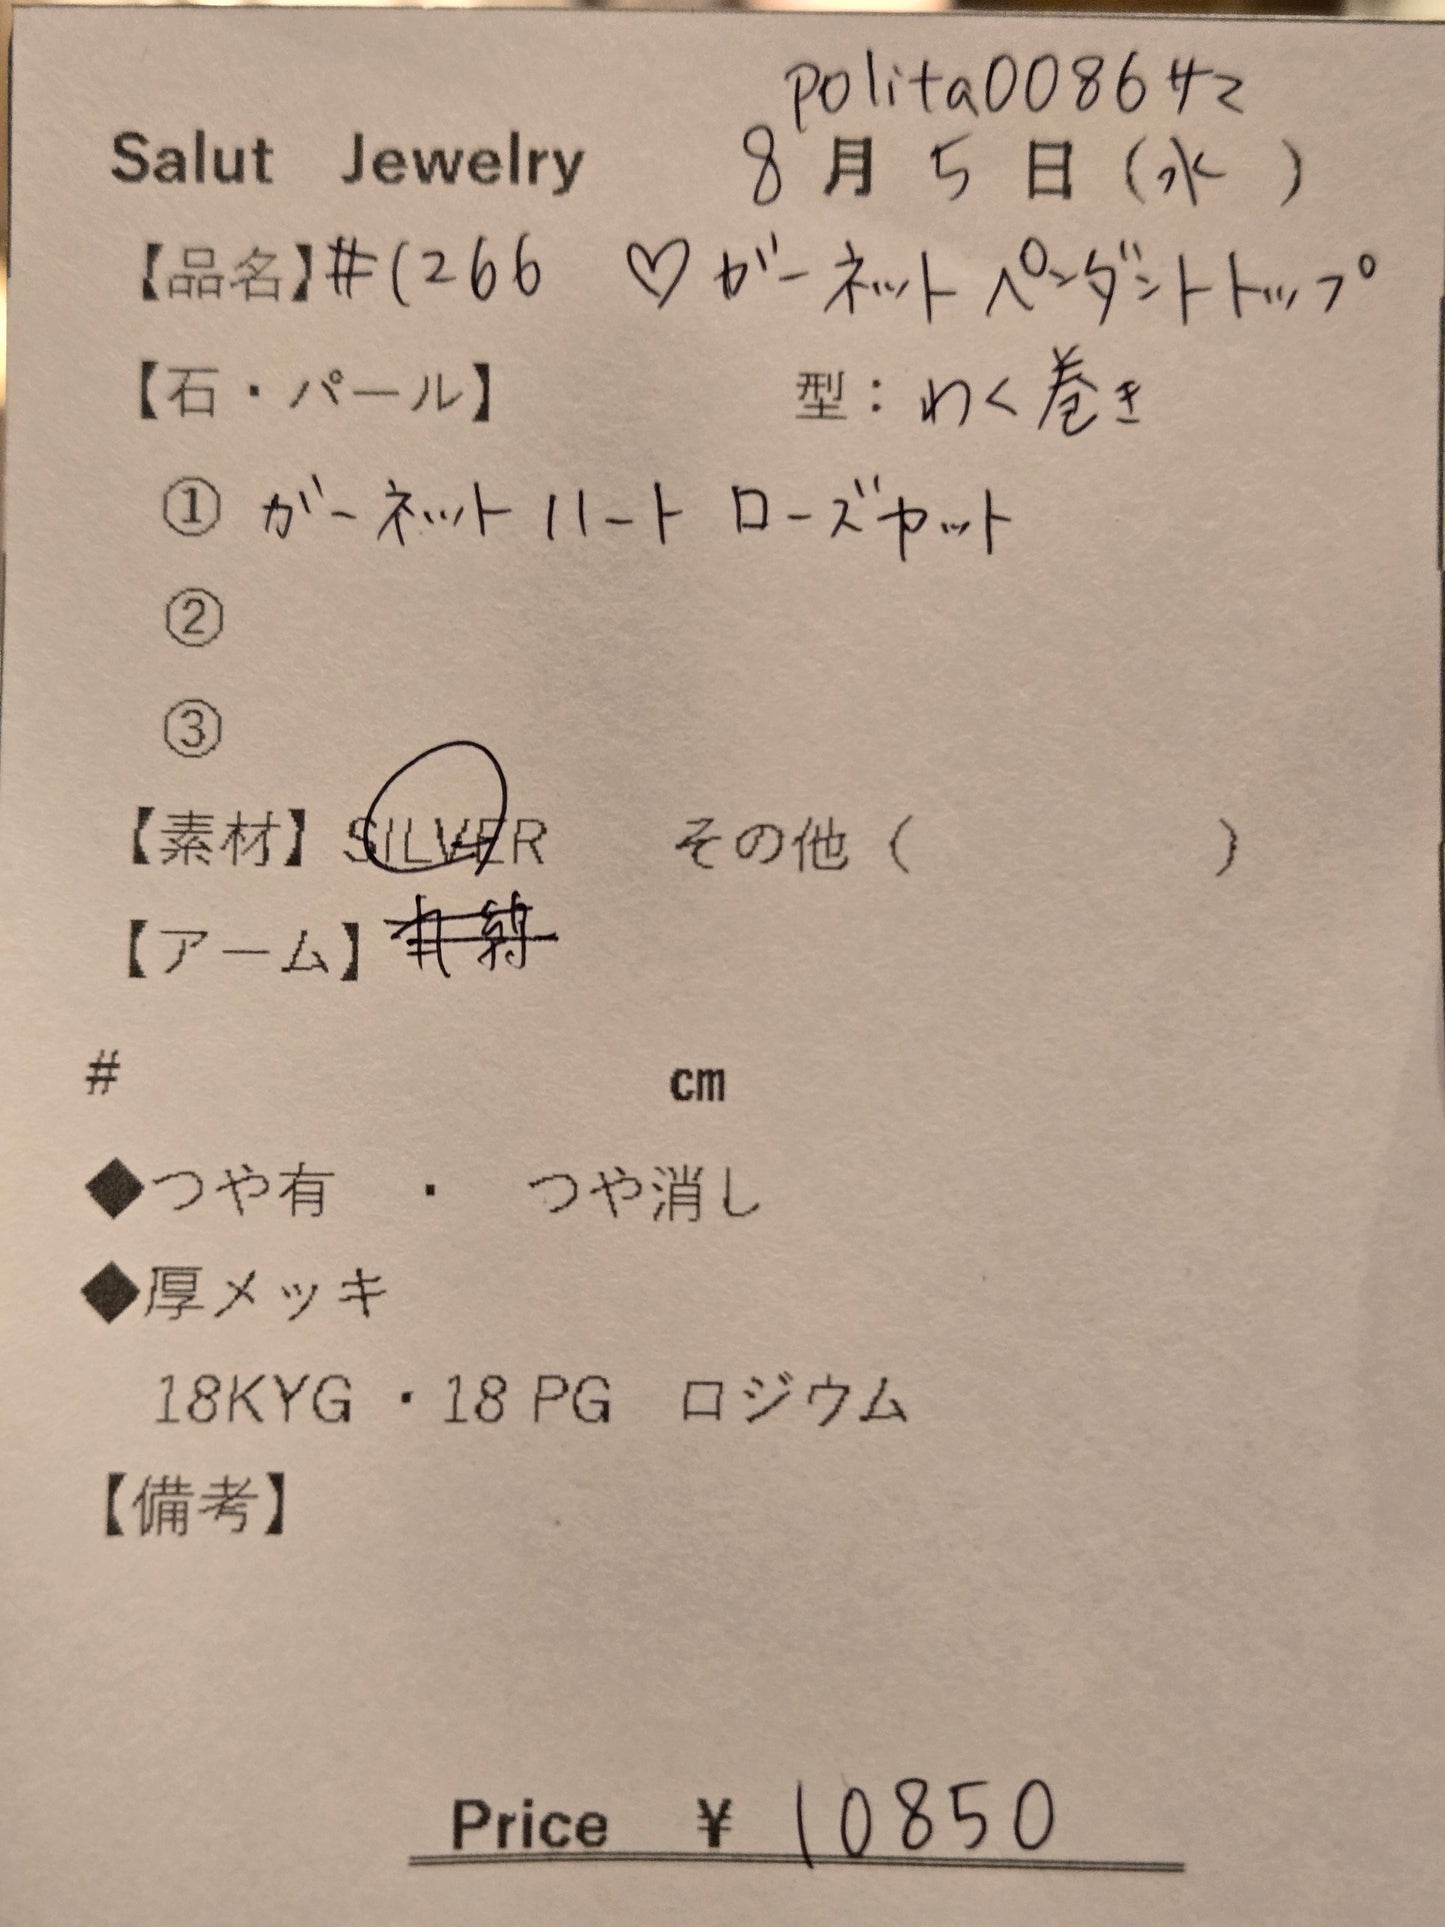 polita008642
Salut Jewelry 8月5日(水 )
【品名】#1266 ♡ガーネットペンダントトップ
【石・パール】 型：わく巻き
① ガーネット ハート ローズカット
②
③
【素材】SILVER その他（ ）
【アーム】
# cm
◆つや有 ・ つや消し
◆厚メッキ
18KYG ・18 PG ロジウム
【備考】
Price ¥ 10850